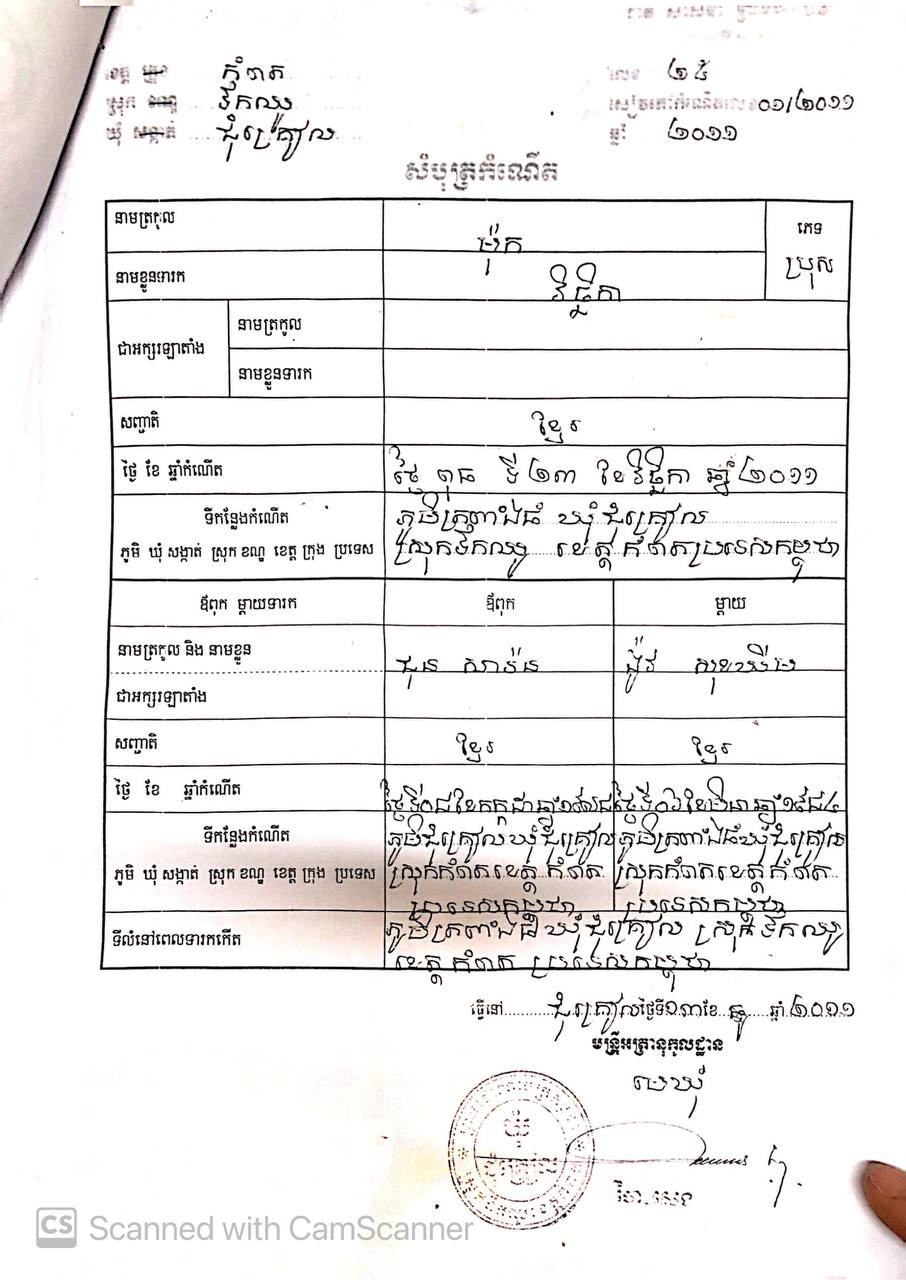 ជាតិ សាសនា
ខេត្ត ក្រុង កំពត
ស្រុក ខណ្ឌ ទឹកឈូ
ឃុំ សង្កាត់ ជុំគ្រៀល
លេខ ២៥
សៀវភៅកំណើតលេខ ០១/២០១១
ឆ្នាំ ២០១១
សំបុត្រកំណើត
នាមត្រកូល ម៉ុក
ភេទ
ប្រុស
នាមខ្លួនទារក វិច្ឆិកា
ជាអក្សរឡាតាំង
នាមត្រកូល
នាមខ្លួនទារក
សញ្ជាតិ ខ្មែរ
ថ្ងៃ ខែ ឆ្នាំកំណើត ថ្ងៃ ពុធ ទី ២៣ ខែ វិច្ឆិកា ឆ្នាំ ២០១១
ទីកន្លែងកំណើត ភូមិត្រពាំងធំ ឃុំជុំគ្រៀល
ភូមិ ឃុំ សង្កាត់ ស្រុក ខណ្ឌ ខេត្ត ក្រុង ប្រទេស ស្រុកទឹកឈូ ខេត្តកំពតប្រទេសកម្ពុជា
ឪពុក ម្តាយទារក ឪពុក ម្តាយ
នាមត្រកូល និង នាមខ្លួន ជុន សារ៉ន
ជាអក្សរឡាតាំង
សញ្ជាតិ ខ្មែរ ខ្មែរ
ថ្ងៃ ខែ ឆ្នាំកំណើត ថ្ងៃទី០៨ខែកក្កដាឆ្នាំ១៩៨៨ ថ្ងៃទី០៦ខែមិនាឆ្នាំ១៩៨៤
ទីកន្លែងកំណើត ភូមិជុំគ្រៀលឃុំជុំគ្រៀល ភូមិត្រពាំងធំឃុំជុំគ្រៀល
ភូមិ ឃុំ សង្កាត់ ស្រុក ខណ្ឌ ខេត្ត ក្រុង ប្រទេស ស្រុកកំពតខេត្តកំពត ស្រុកកំពតខេត្តកំពត
ប្រទេសកម្ពុជា ប្រទេសកម្ពុជា
ទីលំនៅពេលទារកកើត ភូមិត្រពាំងធំ ឃុំជុំគ្រៀល ស្រុកទឹកឈូ
ខេត្តកំពត ប្រទេសកម្ពុជា
ធ្វើនៅ ជុំគ្រៀល ថ្ងៃទី១៣ខែ ធ្នូ ឆ្នាំ ២០១១
មន្ត្រីអត្រានុកូលដ្ឋាន
មេឃុំ
ឃុំ
ជុំគ្រៀល
CS Scanned with CamScanner